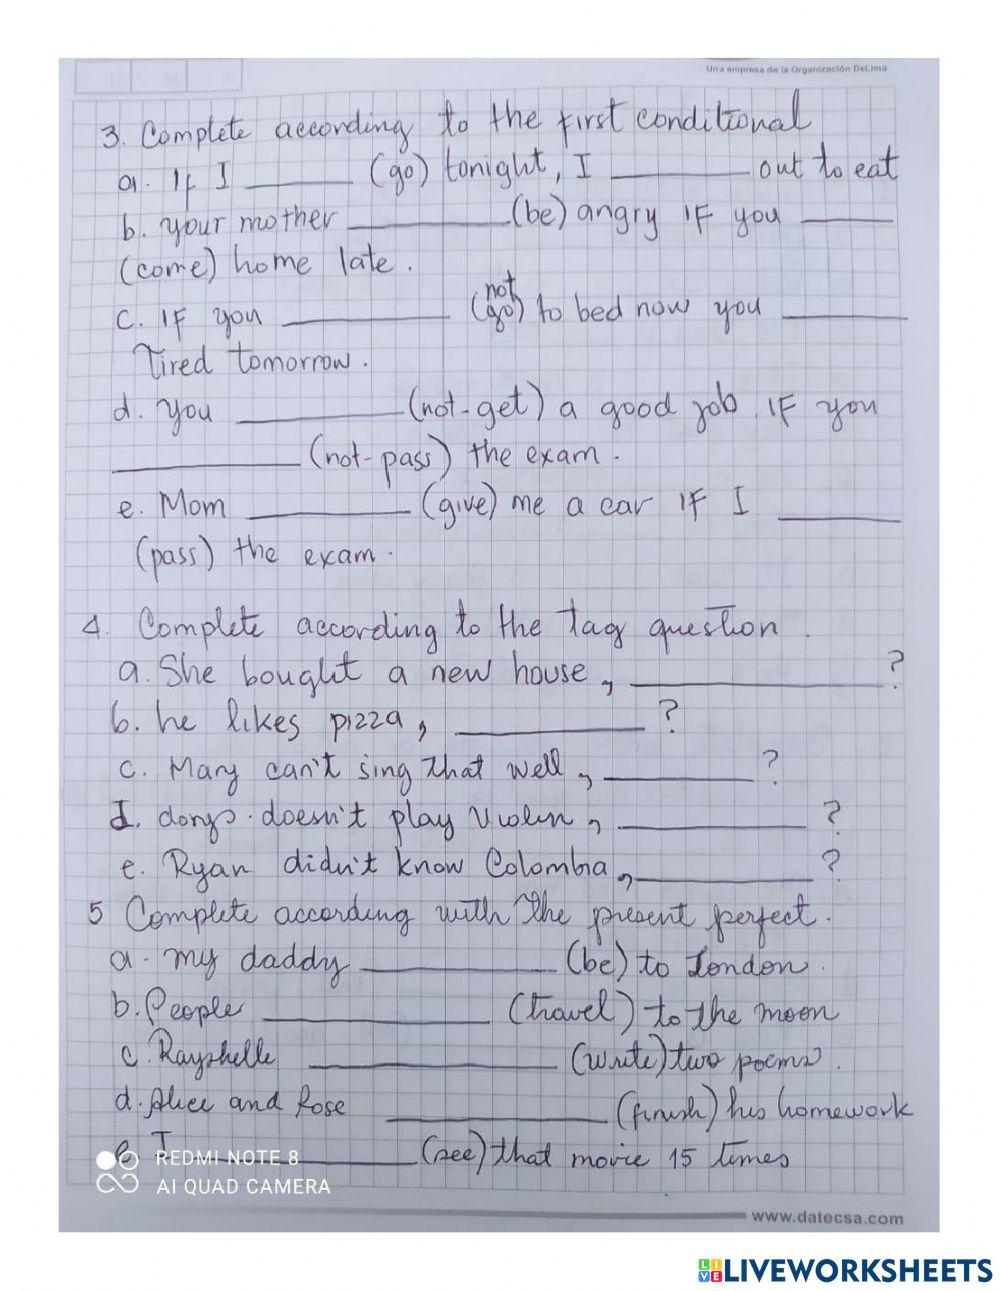 Una empresa de la Organización DeLima
D M A
3. Complete according to the first conditional
a. If I ________ (go) tonight, I ________ out to eat
b. your mother ________ (be) angry IF you ________
(come) home late.
not
c. IF you ________ (go) to bed now you ________
Tired tomorrow.
d. You ________ (not-get) a good job IF you
________ (not-pass) the exam.
e. Mom ________ (give) me a car IF I ________
(pass) the exam.
4. Complete according to the Tag question.
a. She bought a new house, ________?
b. he likes pizza, ________?
c. Mary can't sing that well, ________?
d. doesn't play Violin, ________?
e. Ryan didn't know Colombia, ________?
5 Complete according with the present perfect.
a. my daddy ________ (be) to London.
b. People ________ (travel) to the moon
c. Rayshelle ________ (write) two poems.
d. Alice and Rose ________ (finish) his homework
e. I ________ (see) that movie 15 times
REDMI NOTE 8
AI QUAD CAMERA
www.datecsa.com
LIVEWORKSHEETS